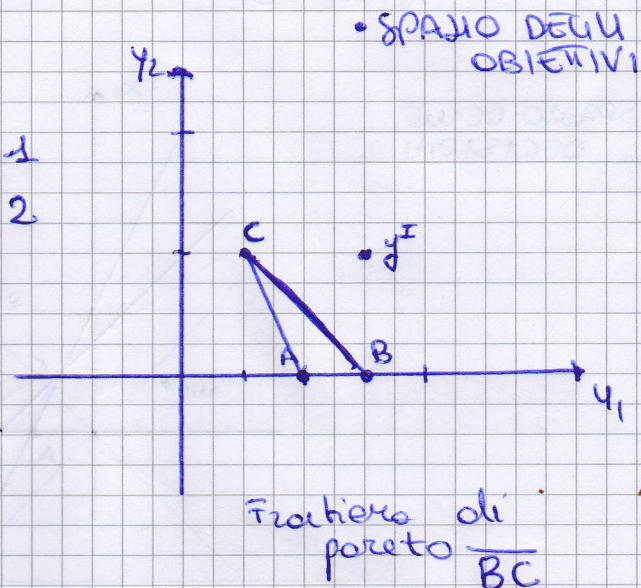 • SPAZIO DEGLI
OBIETTIVI
y2
1
2
C
y^I
A
B
y1
Frontiera di
pareto BC